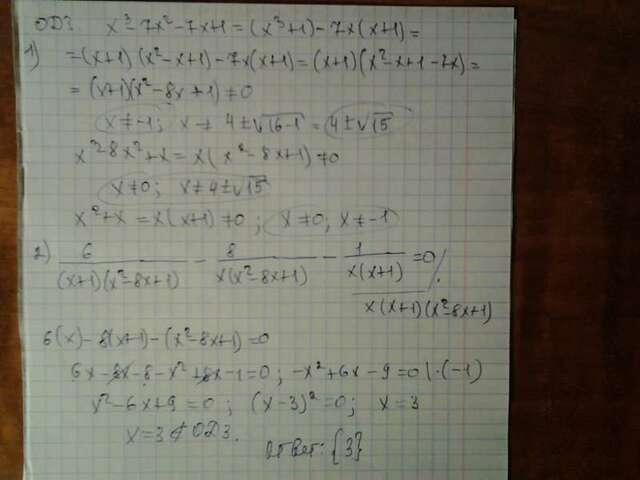 ОДЗ x³-7x²-7x+1=(x³+1)-7x(x+1)=
1) =(x+1)(x²-x+1)-7x(x+1)=(x+1)(x²-x+1-7x)=
=(x+1)(x²-8x+1)≠0
x≠-1; x≠4±√16-1=4±√15
x³-8x²+x=x(x²-8x+1)≠0
x≠0; x≠4±√15
x²+x=x(x+1)≠0; x≠0, x≠-1
2) 6/((x+1)(x²-8x+1)) - 8/(x(x²-8x+1)) - 1/(x(x+1)) =0 /·
x(x+1)(x²-8x+1)
6(x)-8(x+1)-(x²-8x+1)=0
6x-8x-8-x²+8x-1=0; -x²+6x-9=0 |·(-1)
x²-6x+9=0; (x-3)²=0; x=3
x=3 ∈ ОДЗ.
Ответ: {3}